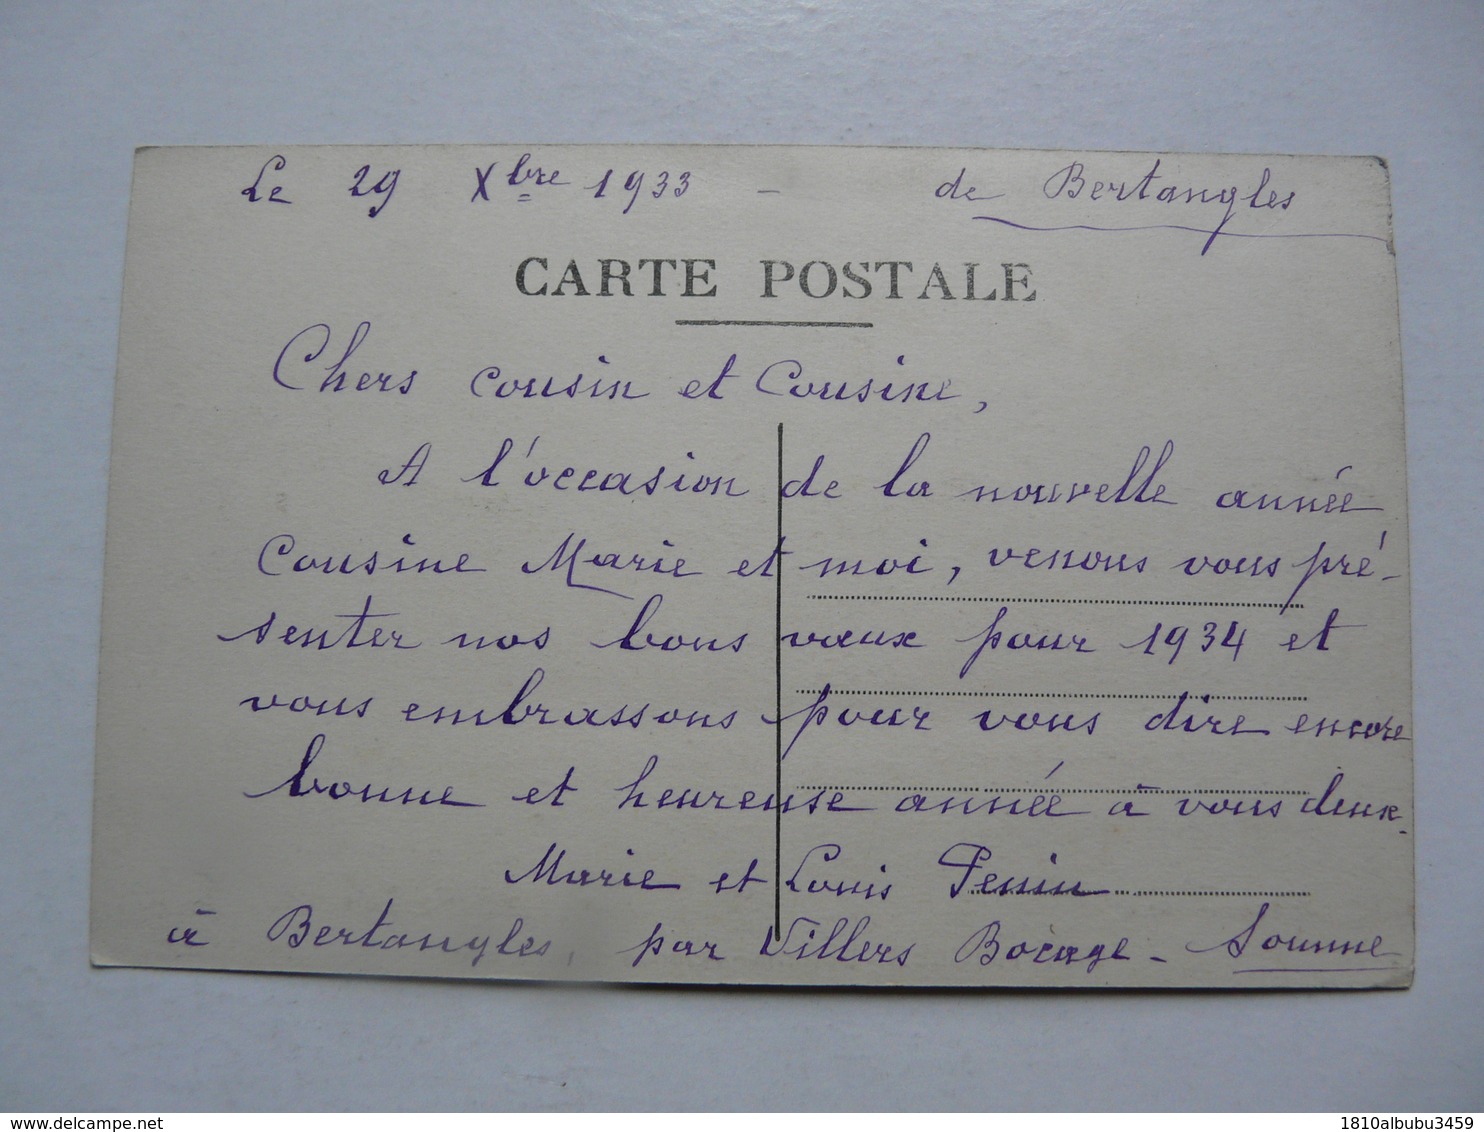 Le 29 Xbre 1933 - de Bertangles
CARTE POSTALE
Chers cousin et Cousine,
A l'occasion de la nouvelle année
Cousine Marie et moi, venons vous pré-
senter nos bons vœux pour 1934 et
vous embrassons pour vous dire encore
bonne et heureuse année à vous deux.
Marie et Louis Penin
à Bertangles, par Villers Bocage - Somme
www.delcampe.net
1810albubu3459